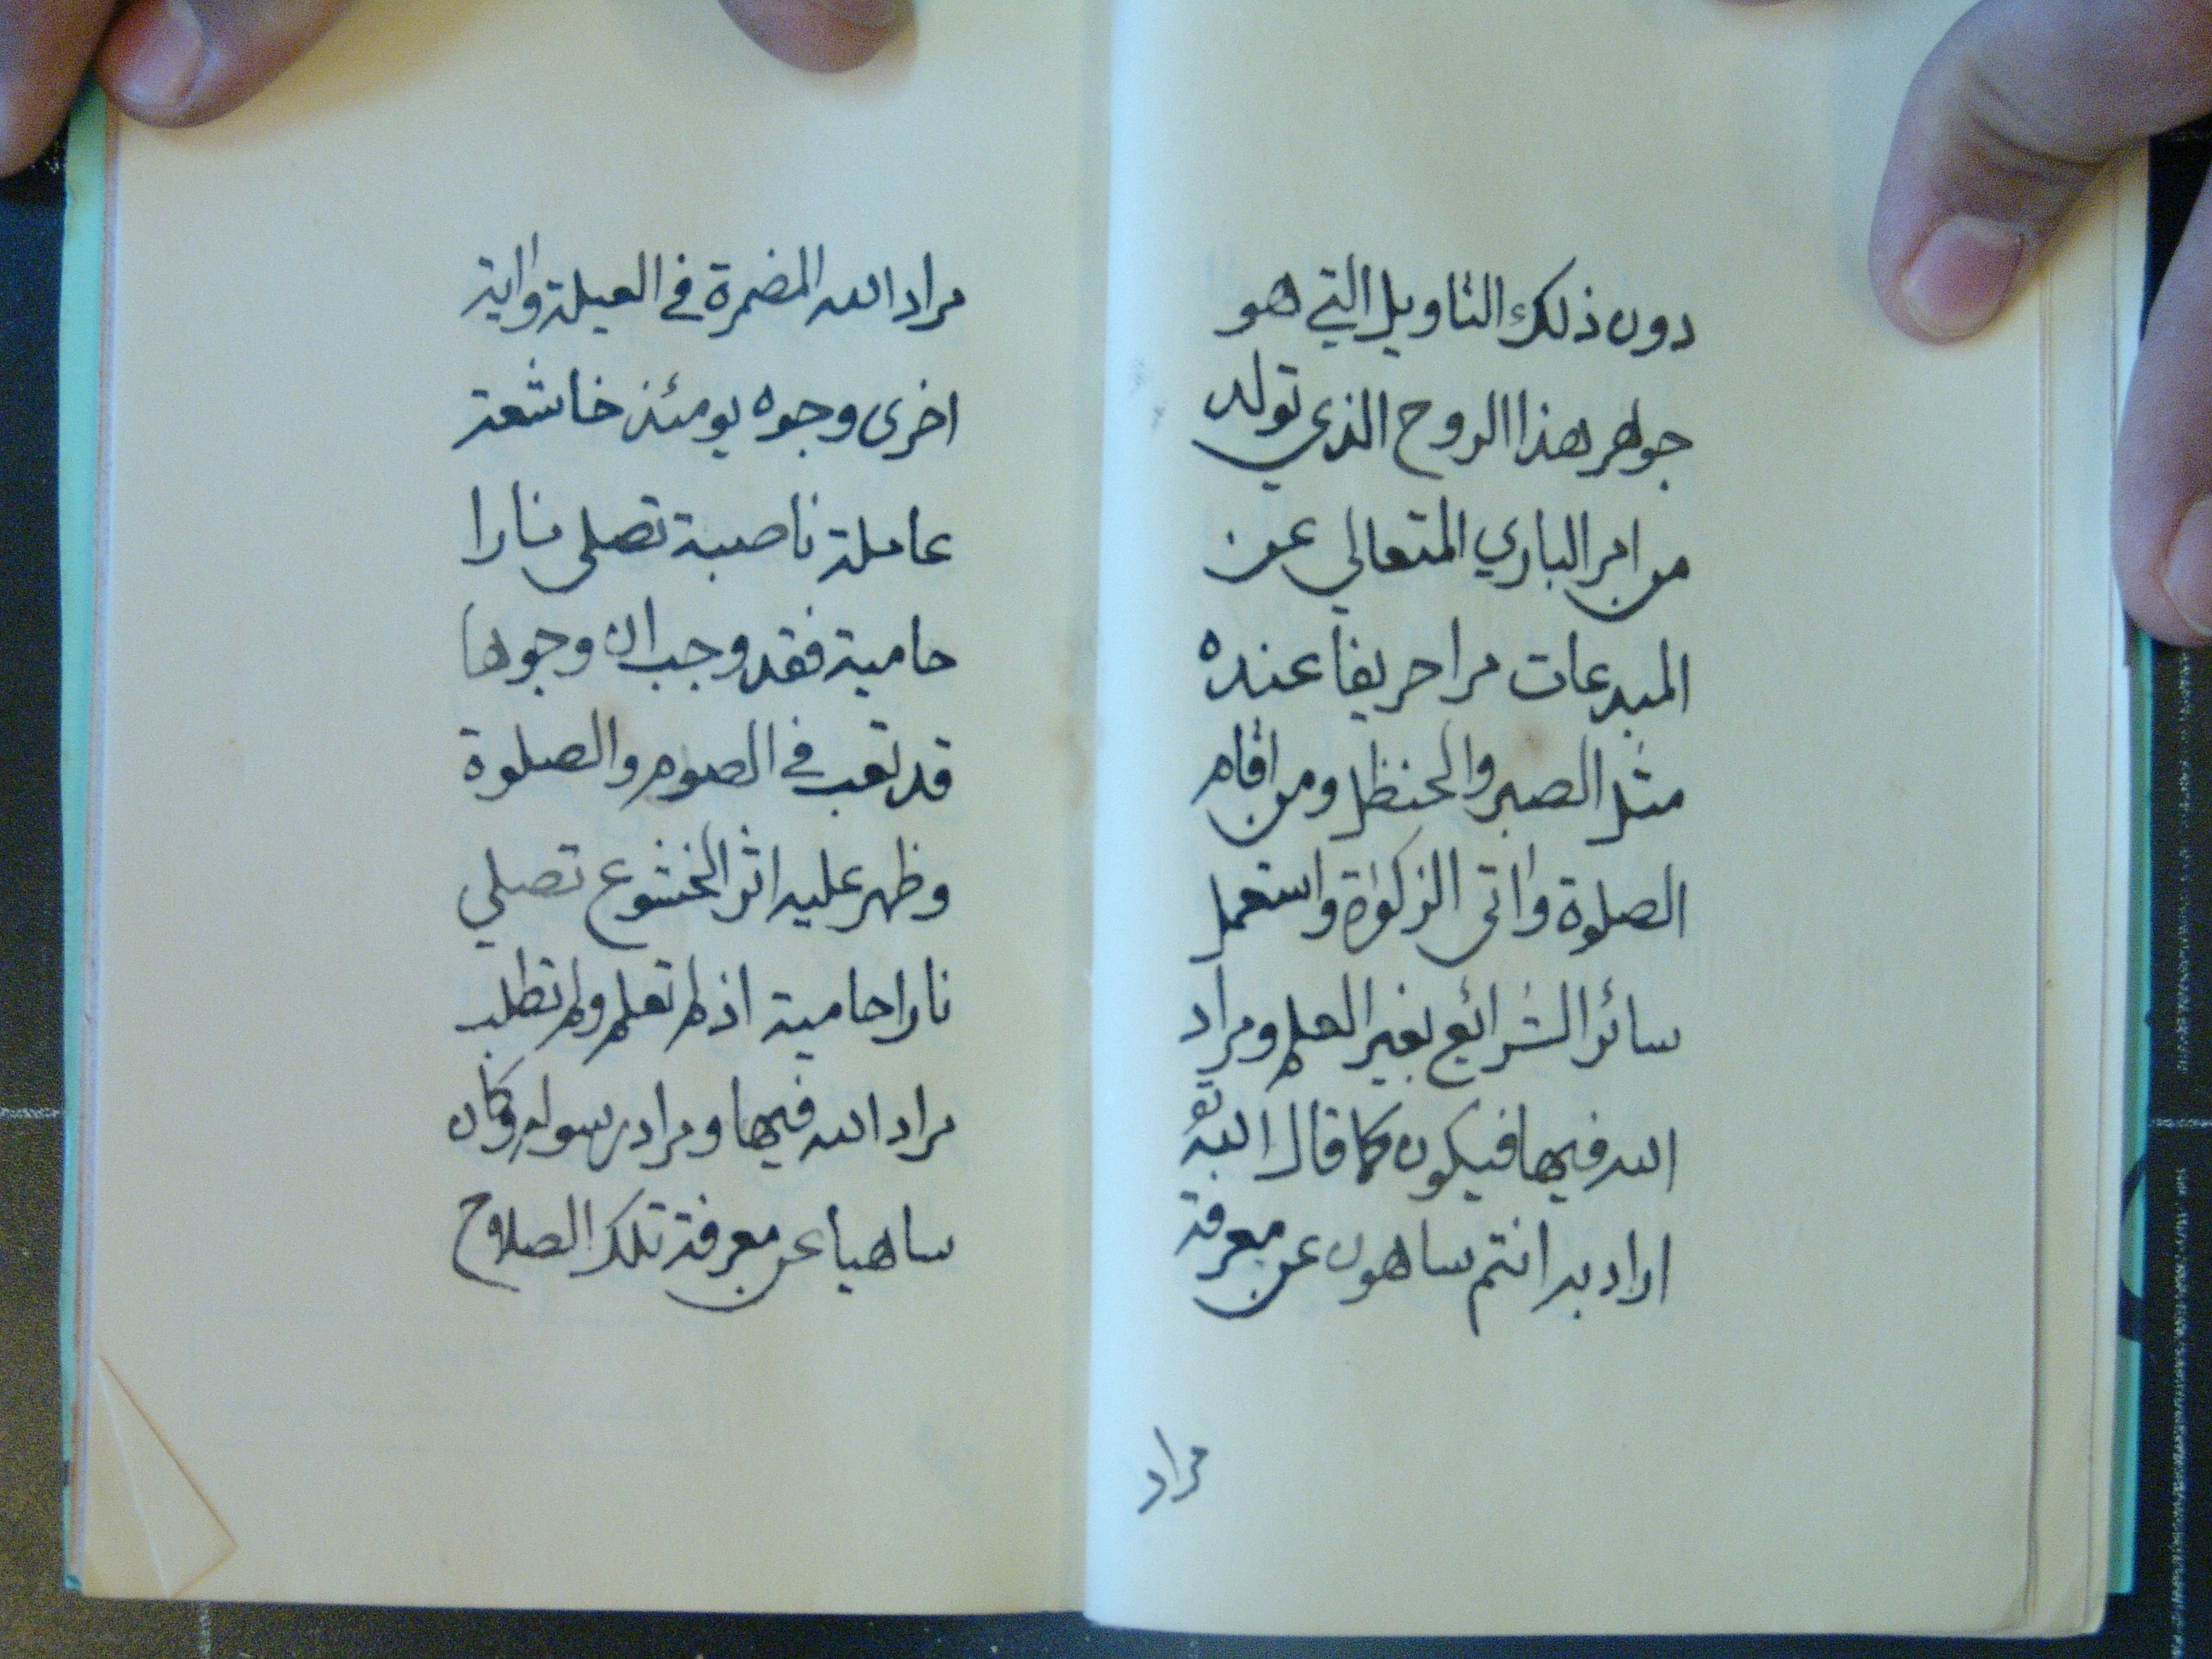 دون ذلك التاويل التي هو
جواهر هذا الروح الذي تولد
من امر الباري المتعالي عن
المبدعات مرا حريفا عنده
مثل الصبر والحنظل ومن اقام
الصلوة واتى الزكوة واستعمل
سائر الشرائع بغير العلم ومراد
الله فيها فيكون كما قال الله تع
اراد به انتم ساهون عن معرفة
مراد
مراد الله المضمرة في العيلة واية
اخرى وجوه يومئذ خاشعة
عاملة ناصبة تصلى نارا
حامية فقد وجب ان وجوها
قد تعب في الصوم والصلوة
وظهر عليه اثر الخشوع تصلي
نارا حامية اذ لم تعلم ولم تطلب
مراد الله فيها ومراد رسوله وكان
ساهيا عن معرفة تلك الصلاح